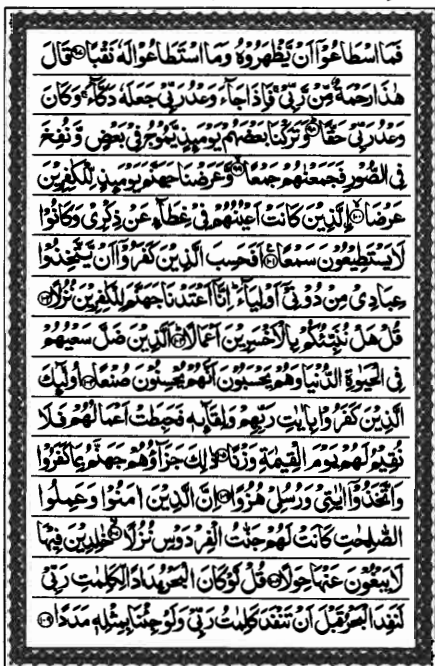 فَمَا اسْطَاعُوْۤا اَنْ يَّظْهَرُوْهُ وَ مَا اسْتَطَاعُوْا لَهٗ نَقْبًا ۹۷ قَالَ
هٰذَا رَحْمَةٌ مِّنْ رَّبِّیْ ۚ فَاِذَا جَآءَ وَعْدُ رَبِّیْ جَعَلَهٗ دَكَّآءَ ۚ وَ كَانَ
وَعْدُ رَبِّیْ حَقًّا ۹۸ وَ تَرَكْنَا بَعْضَهُمْ يَوْمَئِذٍ يَّمُوْجُ فِیْ بَعْضٍ وَّ نُفِخَ
فِی الصُّوْرِ فَجَمَعْنٰهُمْ جَمْعًا ۹۹ وَّ عَرَضْنَا جَهَنَّمَ يَوْمَئِذٍ لِّلْكٰفِرِيْنَ
عَرْضَا ۱۰۰ اِ۟لَّذِيْنَ كَانَتْ اَعْيُنُهُمْ فِیْ غِطَآءٍ عَنْ ذِكْرِیْ وَ كَانُوْا
لَا يَسْتَطِيْعُوْنَ سَمْعًا ۱۰۱ اَفَحَسِبَ الَّذِيْنَ كَفَرُوْۤا اَنْ يَّتَّخِذُوْا
عِبَادِیْ مِنْ دُوْنِیْۤ اَوْلِيَآءَ ؕ اِنَّاۤ اَعْتَدْنَا جَهَنَّمَ لِلْكٰفِرِيْنَ نُزُلًا ۱۰۲
قُلْ هَلْ نُنَبِّئُكُمْ بِالْاَخْسَرِيْنَ اَعْمَالًا ۱۰۳ اَلَّذِيْنَ ضَلَّ سَعْيُهُمْ
فِی الْحَيٰوةِ الدُّنْيَا وَ هُمْ يَحْسَبُوْنَ اَنَّهُمْ يُحْسِنُوْنَ صُنْعًا ۱۰۴ اُولٰٓئِكَ
الَّذِيْنَ كَفَرُوْا بِاٰيٰتِ رَبِّهِمْ وَ لِقَآئِهٖ فَحَبِطَتْ اَعْمَالُهُمْ فَلَا
نُقِيْمُ لَهُمْ يَوْمَ الْقِيٰمَةِ وَزْنًا ۱۰۵ ذٰلِكَ جَزَآؤُهُمْ جَهَنَّمُ بِمَا كَفَرُوْا
وَ اتَّخَذُوْۤا اٰيٰتِیْ وَ رُسُلِیْ هُزُوًا ۱۰۶ اِنَّ الَّذِيْنَ اٰمَنُوْا وَ عَمِلُوا
الصّٰلِحٰتِ كَانَتْ لَهُمْ جَنّٰتُ الْفِرْدَوْسِ نُزُلًا ۱۰۷ خٰلِدِيْنَ فِيْهَا
لَا يَبْغُوْنَ عَنْهَا حِوَلًا ۱۰۸ قُلْ لَّوْ كَانَ الْبَحْرُ مِدَادًا لِّكَلِمٰتِ رَبِّیْ
لَنَفِدَ الْبَحْرُ قَبْلَ اَنْ تَنْفَدَ كَلِمٰتُ رَبِّیْ وَ لَوْ جِئْنَا بِمِثْلِهٖ مَدَدًا ۱۰۹